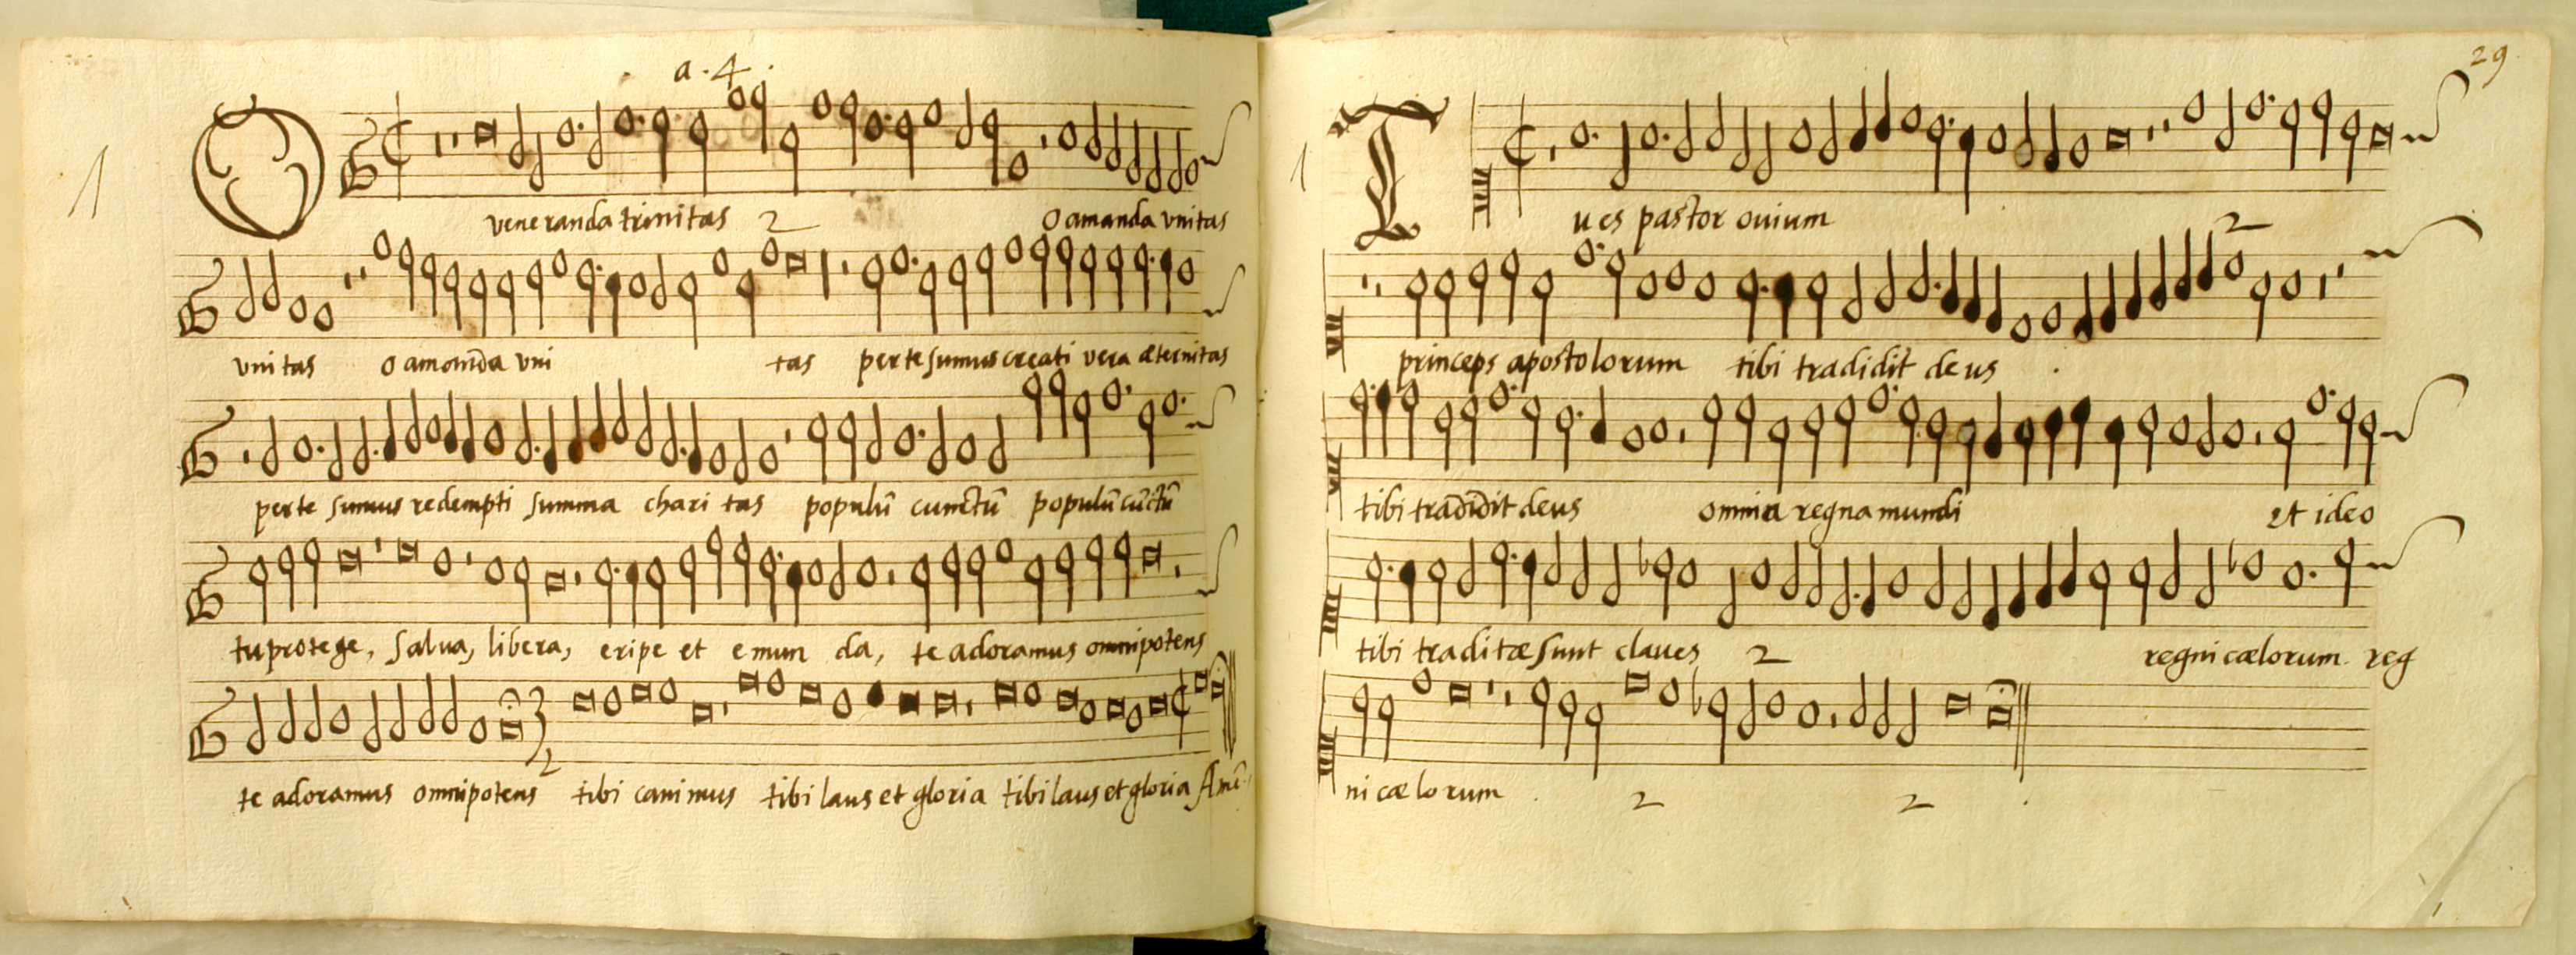 a . 4 .
O veneranda trinitas 2 O amanda vnitas
vnitas O amanda vni tas per te sumus creati vera æternitas
per te sumus redempti summa charitas populũ cunctũ populũ cũctũ
tu protege, salua, libera, eripe et emun da, te adoramus omnipotens
te adoramus omnipotens tibi canimus tibi laus et gloria tibi laus et gloria Amẽ.
29
Tu es pastor ouium 2
princeps apostolorum tibi tradidit deus .
tibi tradidit deus omnia regna mundi et ideo
tibi traditæ sunt claues 2 regni cælorum reg
ni cælorum . 2 2 .